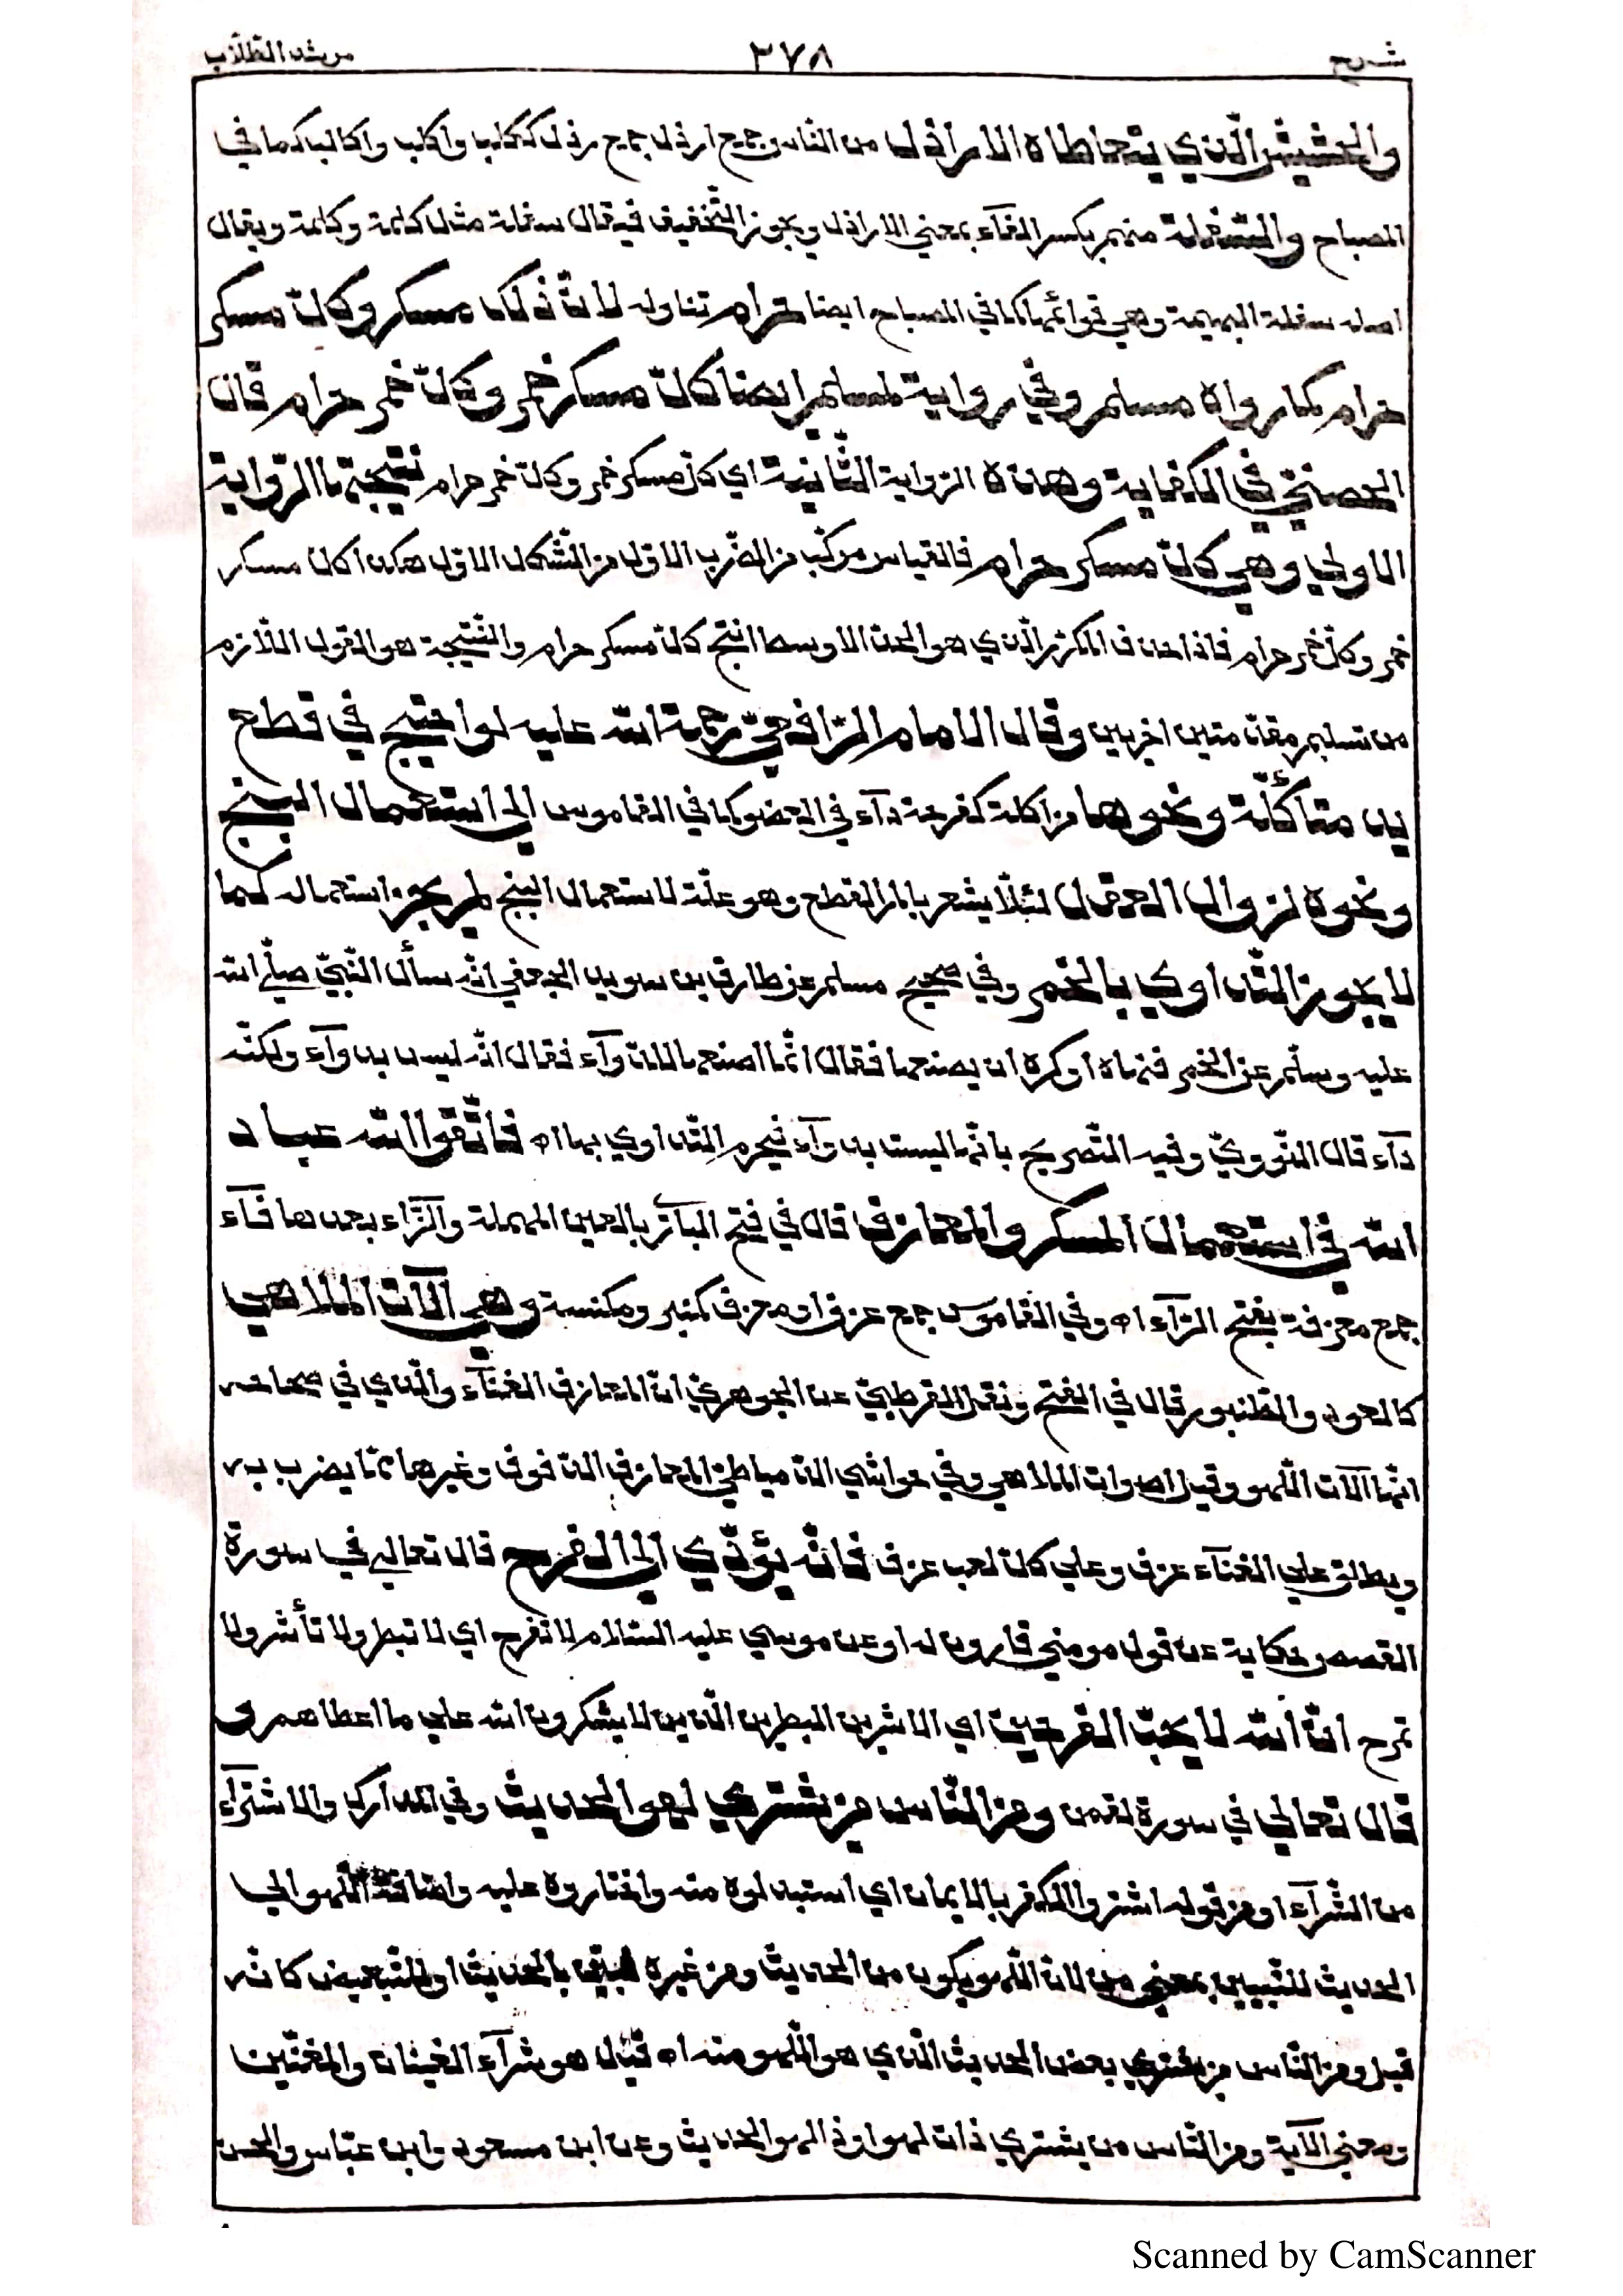 شرح ٣٧٨ مرشد الطلّاب
والحشيش الّذي يتعاطاه الاراذل من الناس وجمع ارذل جمع رذل ككلب واكلب واكالب كما في
المصباح والسّفلة منهم بكسر الفآء بمعني الاراذل ويجوز التّخفيف فيقال سفلة مثل كلمة وكلمة ويقال
اصله سفلة البهيمة وهي قوائمها كما في المصباح ايضا حرام تناوله لانّ ذلك مسكر وكلّ مسكر
حرام كما رواه مسلم وفي رواية لمسلم ايضا كلّ مسكر خمر وكلّ خمر حرام قال
الحصنيّ في الكفاية وهذه الرّواية الثّانية اي كلّ مسكر خمر وكلّ خمر حرام نتيجتها الرّواية
الاولي وهي كلّ مسكر حرام فالقياس مركّب من الضّرب الاوّل من الشّكل الاوّل هكذا كلّ مسكر
خمر وكلّ خمر حرام فاذا حذف المكرّر الّذي هو الحدّ الاوسط انتج كلّ مسكر حرام والنّتيجة هو القول اللّازم
من تسليم مقدّمتين اخريين وقال الامام الرّافعيّ رحمة الله عليه لو احتيج في قطع
يد متأكّلة ونحوها من اكلة كفرحة دآء في العضو كما في القاموس الي استعمال البنج
ونحوه لزوال العقل لئلّا يشعر بالم القطع وهو علّة لاستعمال البنج لم يجز استعماله كما
لا يجوز التّداوي بالخمر وفي صحيح مسلم عن طارق بن سويد الجعفي انّه سأل النّبيّ صلّي الله
عليه وسلّم عن الخمر فنهاه او كره ان يصنعها فقال انّما اصنعها للدّوآء فقال انّه ليس بدوآء ولكنّه
دآء قال النّوويّ وفيه التّصريح بانّها ليست بدوآء فيحرم التّداوي بها اه فاتّقوا الله عباد
الله في استعمال المسكر والمعازف قال في فتح الباري بالعين المهملة والزّاء بعدها فآء
جمع معزفة بفتح الزّآء اه وفي القاموس جمع عزف او معزف كمنبر ومكنسة وهي آلآت الملاهي
كالعود والطّنبور قال في الفتح ونقل القرطبيّ عن الجوهريّ انّ المعازف الغنآء والّذي في صحاحه
انّها آلآت اللّهو وقيل اصوات الملاهي وفي حواشي الدّمياطيّ المعازف الدّفوف وغيرها ممّا يضرب به
ويطلق علي الغنآء عزف وعلي كلّ لعب عزف فانّه يؤدّي الي الفرح قال تعالي في سورة
القصص حكاية عن قول مومني قارون له او عن موسي عليه السّلام لا تفرح اي لا تبطر ولا تأشر ولا
تمرح انّ الله لا يحبّ الفرحين اي الاشرين البطرين الّذين لا يشكرون الله علي ما اعطاهم و
قال تعالي في سورة لقمن ومن النّاس من يشتري لهو الحديث وفي المدارك والاشترآء
من الشّرآء او من قوله اشتروا الكفر بالايمان اي استبدلوه منه واختاروه عليه واضافة اللّهو الي
الحديث للتّبيين بمعني من لانّ اللّهو يكون من الحديث ومن غيره فبيّن بالحديث او للتّبعيض كانّه
قيل ومن النّاس من يشتري بعض الحديث الّذي هو اللّهو منه اه قيل هو شرآء القينات والمغنّين
ومعني الآية ومن النّاس من يشتري ذات لهو او ذا لهو الحديث وعن ابن مسعود وابن عبّاس والحسن
Scanned by CamScanner